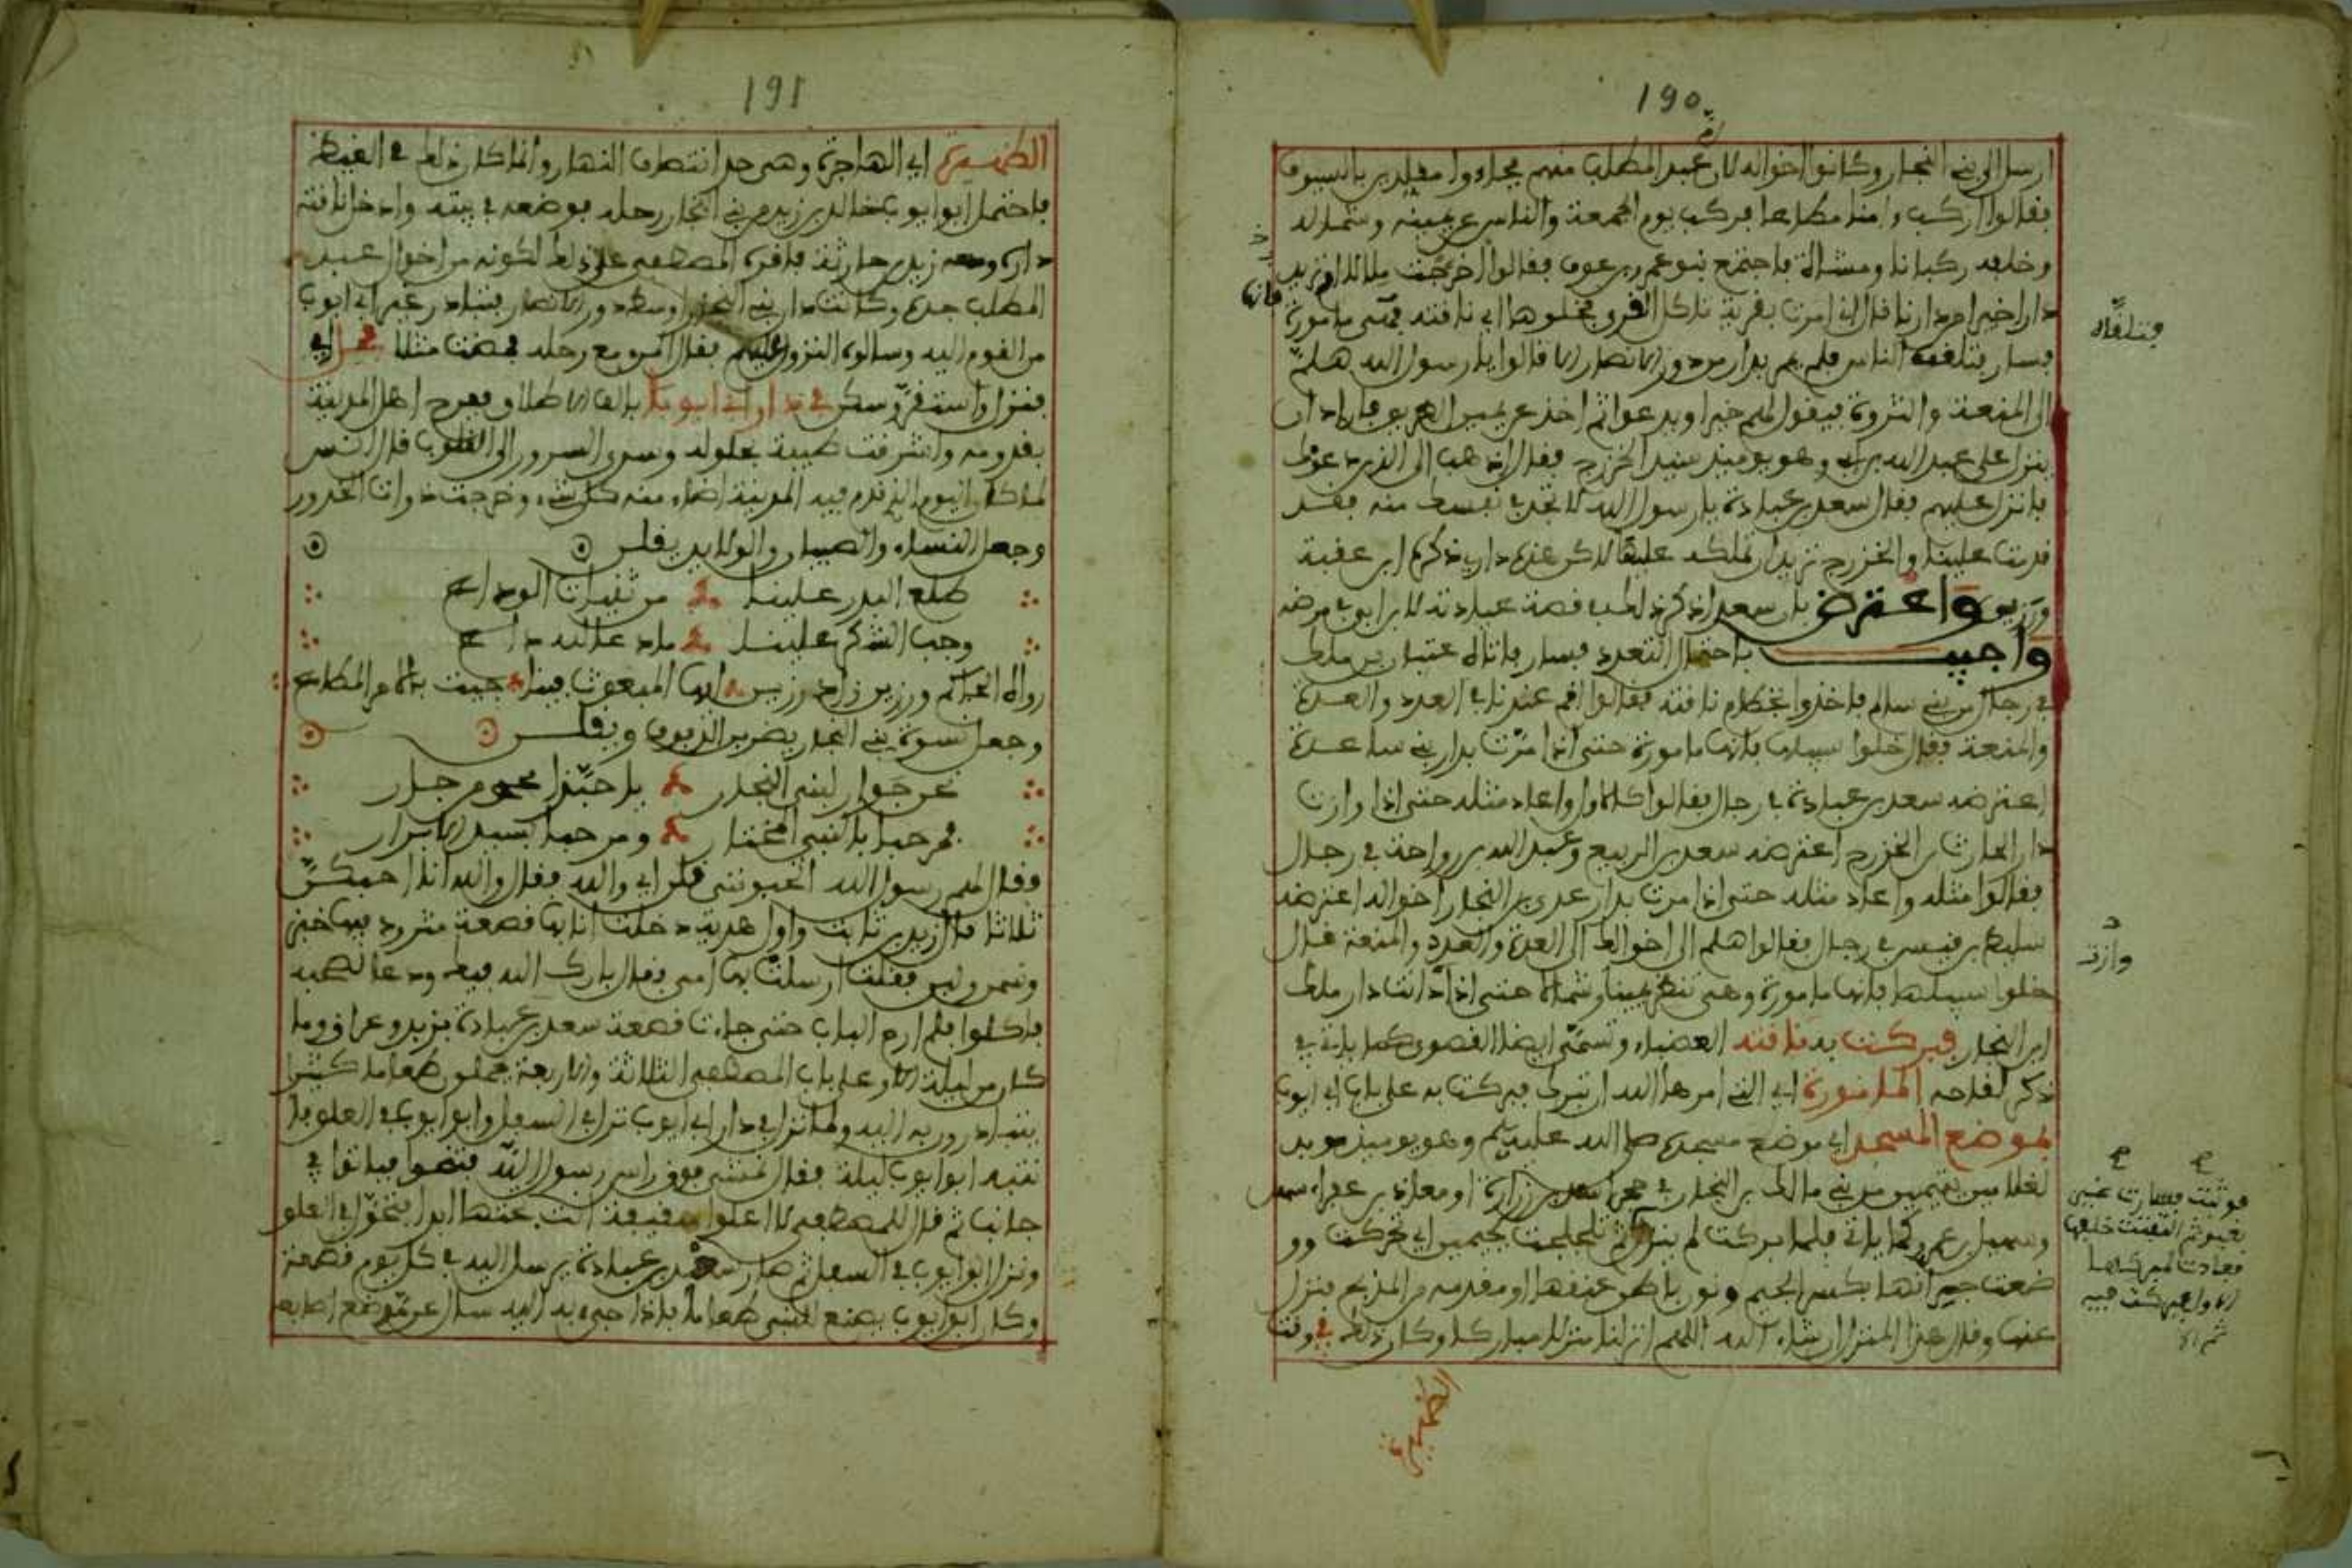 190
ارسل الى بني النجار وكانوا اخواله لان ام عبد المطلب منهم فجاءوا متقلدين بالسيوف
فقالوا اركب ءامنا مطاعا فركب يوم الجمعة والناس عن يمينه وشماله
وخلفه ركبانا ومشاة فاجتمع بنو عمرو بن عوف فقالوا اخرجت ملالا ام تريد
دارا خيرا من دارنا قال اني امرت بقرية تاكل القرى فخلوها اي ناقته فهي مامورة
فسار يتلقفه الناس فلم يمر بدار من دور الانصار الا قالوا يا رسول الله هلم
الى المنعة والثروة فيقول لهم خيرا ويدعو ثم اخذ عن يمين الطريق فاراد ان
ينزل على عبد الله بن ابي وهو يومئذ سيد الخزرج فقال اذهب الى الذين دعوك
فانزل عليهم فقال سعد بن عبادة يا رسول الله لا تجد في نفسك منه فقد
قدمت علينا والخزرج تريد ان تملكه عليها لاكن عندي داري ذكره ابن عقبة
ورزين واعترض بان سعدا ذكر ذلك في قصة عيادته لابن ابي في مرضه
واجيب باحتمال التعدد فسار فاتاه عتبان بن مالك
في رجال من بني سالم فاخذوا بخطام ناقته فقالوا اقم عندنا في العدد والعدة
والمنعة فقال خلوا سبيلها فانها مامورة حتى اذا مرت بدار بني ساعدة
اعترضه سعد بن عبادة في رجال فقالوا كالاول واعاد مثله حتى اذا وازت
دار الحارث بن الخزرج اعترضه سعد بن الربيع وعبد الله بن رواحة في رجال
فقالوا مثله واعاد مثله حتى اذا مرت بدار عدي بن النجار اخواله اعترضه
سليط بن قيس في رجال فقالوا هلم الى اخوالك الى العدة والعدد والمنعة فقال
خلوا سبيلها فانها مامورة وهي تنظر يمينا وشمالا حتى اذا اتت دار مالك
ابن النجار فبركت به ناقته العضباء وتسمى ايضا القصوى كما ياتي في
ذكر لقاحه المامورة اي التي امرها الله ان تبرك فبركت به على باب ابي ايوب
لموضع المسجد اي موضع مسجده صلى الله عليه وسلم وهو يومئذ مربد
لغلامين يتيمين من بني مالك بن النجار في حجر اسعد بن زرارة او معاذ بن عفراء سهل
وسهيل بن عمرو كما ياتي فلما بركت لم ينزل ثم تلحلحت بجيمين اي تحركت وو
ضعت جرانها بكسر الجيم ونون باطن عنقها او مقدمه من المذبح فنزل
عنها وقال هذا المنزل ان شاء الله اللهم انزلنا منزلا مباركا وكان ذلك في وقت
الظهيرة
فانها
يتلقاه
وازت
فوثبت فسارت غير
بعيد ثم التفتت خلفها
فعادت لمبركها
الاول فبركت فيه
191
الظهيرة اي الهاجرة وهي حد انتصاف النهار وانما كان ذلك في القيظ
فاحتمل ابو ايوب خالد بن زيد من بني النجار رحله فوضعه في بيته وادخل ناقته
داره ومعه زيد بن حارثة فاقره المصطفى على ذلك لكونه من اخوال عبد
المطلب جده وكانت دار بني النجار اوسط دور الانصار فتبادر غير ابي ايوب
من القوم اليه وسالوه النزول عليهم فقال المرء مع رحله فمضت مثلا فحل اي
فنزل واستقر وسكن في دار ابي ايوبا بالف الاطلاق وفرح اهل المدينة
بقدومه واشرقت طيبة بحلوله وسرى السرور الى القلوب قال انس
لما كان اليوم الذي قدم فيه المدينة اضاء منه كل شيء وخرجت ذوات الخدور
وجعل النساء والصبيان والولايد يقلن
طلع البدر علينا من ثنيات الوداع
وجب الشكر علينا ما دعا لله داع
رواه الحاكم ورزين زاد رزين ايها المبعوث فينا جيت بالامر المطاع
وجعل نسوة بني النجار يضربن الدفوف ويقلن
نحن جوار لبني النجار يا حبذا محمد من جار
فمرحبا بالنبي المختار ومرحبا بسيد الابرار
فقال لهم رسول الله اتحبونني قلن اي والله فقال والله انا احبكن
ثلاثا قال زيد بن ثابت واول هدية دخلت انا بها قصعة مثرود فيها خبز
وسمن ولبن فقلت ارسلت بها امي فقال بارك الله فيك ودعا لصحبه
فاكلوا فلم ارم الباب حتى جاءت قصعة سعد بن عبادة ثريد وعراق وما
كان من ليلة الا وعلى باب المصطفى الثلاثة والاربعة يحملون طعاما كثيرا
يتبادرون به اليه ولما نزل في دار ابي ايوب نزل في السفل وابو ايوب في العلو فا
نتبه ابو ايوب ليلة فقال نمشي فوق راس رسول الله فتنحوا فباتوا في
جانب ثم قال للمصطفى لا اعلوا سقيفة انت تحتها ابدا فتحول في العلو
ونزل ابو ايوب في السفل ثم صار سعد بن عبادة يرسل اليه في كل يوم قصعة
وكان ابو ايوب يصنع للنبي طعاما فاذا جيء به اليه سال عن موضع اصابعه